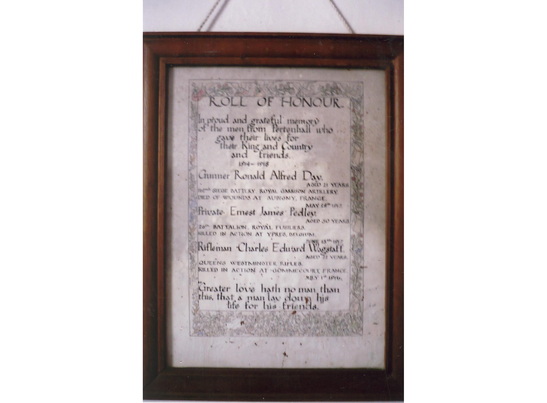 ROLL OF HONOUR.
In proud and grateful memory
of the men from Pertenhall who
gave their lives for
their King and Country
and friends.
1914-1918
Gunner Ronald Alfred Day.
AGED 21 YEARS
SIEGE BATTERY ROYAL GARRISON ARTILLERY
DIED OF WOUNDS AT AUBIGNY, FRANCE.
MAY 1917
Private Ernest James Pedley.
AGED 20 YEARS
BATTALION, ROYAL FUSILIERS
KILLED IN ACTION AT YPRES, BELGIUM.
1917
Rifleman Charles Edward Wagstaff.
AGED YEARS
QUEENS WESTMINSTER RIFLES
KILLED IN ACTION AT GOMMECOURT FRANCE
JULY 1st 1916.
Greater love hath no man than
this, that a man lay down his
life for his friends.